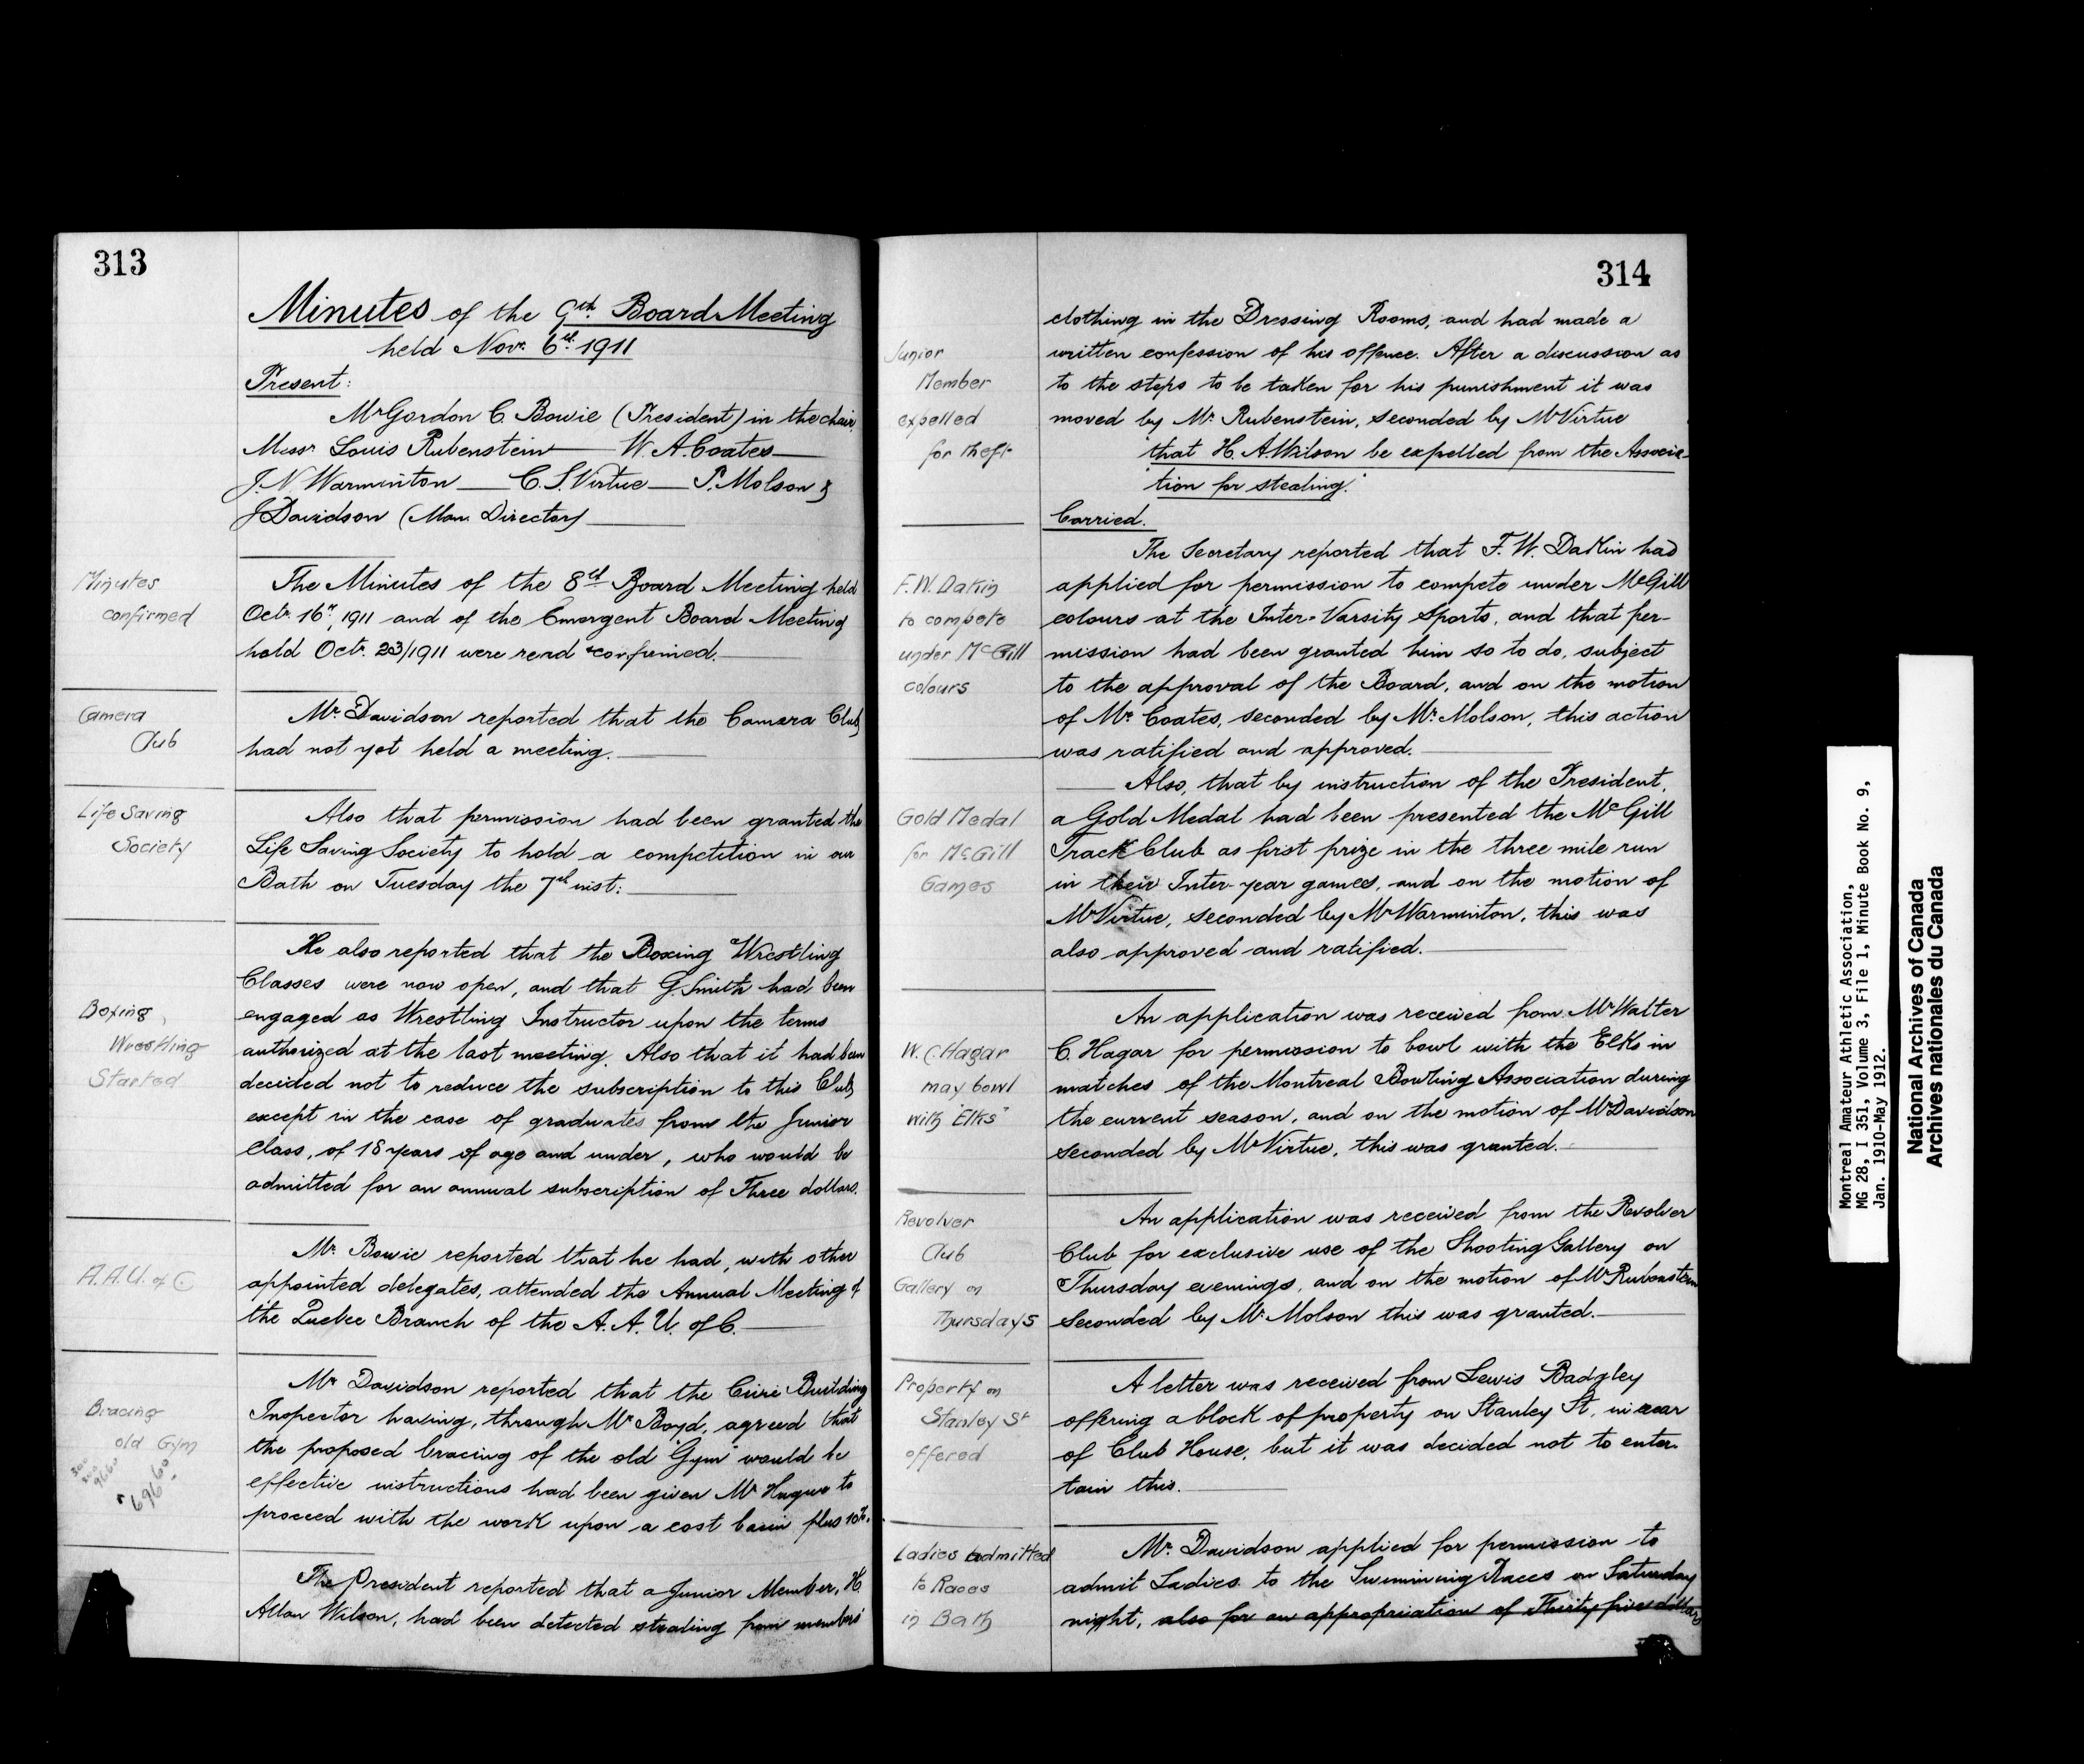 313
Minutes of the 9th Board Meeting
held Novr 6th 1911
Present:
Mr Gordon C. Bowie (President) in the chair
Messr Louis Rubenstein W. A. Coates
J. N. Warminton C. S. Virtue P. Molson &
J Davidson (Man. Director)
Minutes
confirmed
The Minutes of the 8th Board Meeting held
Octr 16th, 1911 and of the Emergent Board Meeting
held Octr 23/1911 were read & confirmed.
Camera
Club
Mr Davidson reported that the Camera Club
had not yet held a meeting.
Life Saving
Society
Also that permission had been granted the
Life Saving Society to hold a competition in our
Bath on Tuesday the 7th inst:
Boxing,
Wrestling
Started
He also reported that the Boxing & Wrestling
Classes were now open, and that G. Smith had been
engaged as Wrestling Instructor upon the terms
authorized at the last meeting. Also that it had been
decided not to reduce the subscription to this Club
except in the case of graduates from the Junior
Class, of 18 years of age and under, who would be
admitted for an annual subscription of Three dollars.
A.A.U. of C.
Mr. Bowie reported that he had, with other
appointed delegates, attended the Annual Meeting of
the Quebec Branch of the A. A. U. of C.
Bracing
old Gym
Mr Davidson reported that the Civic Building
Inspector having, through Mr Boyd, agreed that
the proposed bracing of the old "Gym" would be
effective instructions had been given Mr Hague to
proceed with the work upon a cost basis plus 10%.
The President reported that a Junior Member, H.
Allan Wilson, had been detected stealing from members'
314
clothing in the Dressing Rooms, and had made a
written confession of his offence. After a discussion as
to the steps to be taken for his punishment it was
moved by Mr. Rubenstein, seconded by Mr Virtue
Junior
Member
expelled
for theft
"that H. A. Wilson be expelled from the Associa-
"tion for stealing."
Carried.
F. W. Dakin
to compete
under McGill
colours
The Secretary reported that F. W. Dakin had
applied for permission to compete under McGill
colours at the Inter-Varsity Sports, and that per-
mission had been granted him so to do, subject
to the approval of the Board, and on the motion
of Mr Coates, seconded by Mr. Molson, this action
was ratified and approved.
Gold Medal
for McGill
Games
Also, that by instruction of the President,
a Gold Medal had been presented the McGill
Track Club as first prize in the three mile run
in their Inter-year games, and on the motion of
Mr Virtue, seconded by Mr Warminton, this was
also approved and ratified.
W. C. Hagar
may bowl
with Elks"
An application was received from Mr Walter
C. Hagar for permission to bowl with the Elks in
matches of the Montreal Bowling Association during
the current season, and on the motion of Mr Davidson
seconded by Mr Virtue, this was granted.
Revolver
Club
Gallery on
Thursdays
An application was received from the Revolver
Club for exclusive use of the Shooting Gallery on
Thursday evenings, and on the motion of Mr Rubenstein
seconded by Mr. Molson this was granted.
Property on
Stanley St
offered
A letter was received from Lewis Badgley
offering a block of property on Stanley St, in rear
of Club House, but it was decided not to enter-
tain this.
Ladies admitted
to Races
in Bath
Mr. Davidson applied for permission to
admit Ladies to the Swimming Races on Saturday
night, also for an appropriation of Thirty five dollars
Montreal Amateur Athletic Association,
MG 28, I 351, Volume 3, File 1, Minute Book No. 9,
Jan. 1910-May 1912.
National Archives of Canada
Archives nationales du Canada